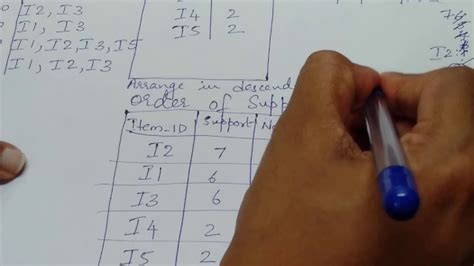 I2, I3
I1, I3
I1, I2, I3, I5
I1, I2, I3
I4 2
I5 2
I2
Arrange in descend
Order of Supp
Item_ID Support
I2 7
I1 6
I3 6
I4 2
I5 2